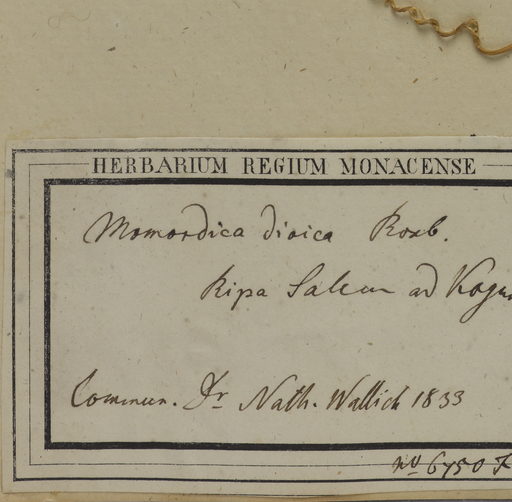 HERBARIUM REGIUM MONACENSE
Momordica dioica Roxb.
Ripa Saluen ad
Commun. Dr Nath. Wallich 1833
no 6750 F